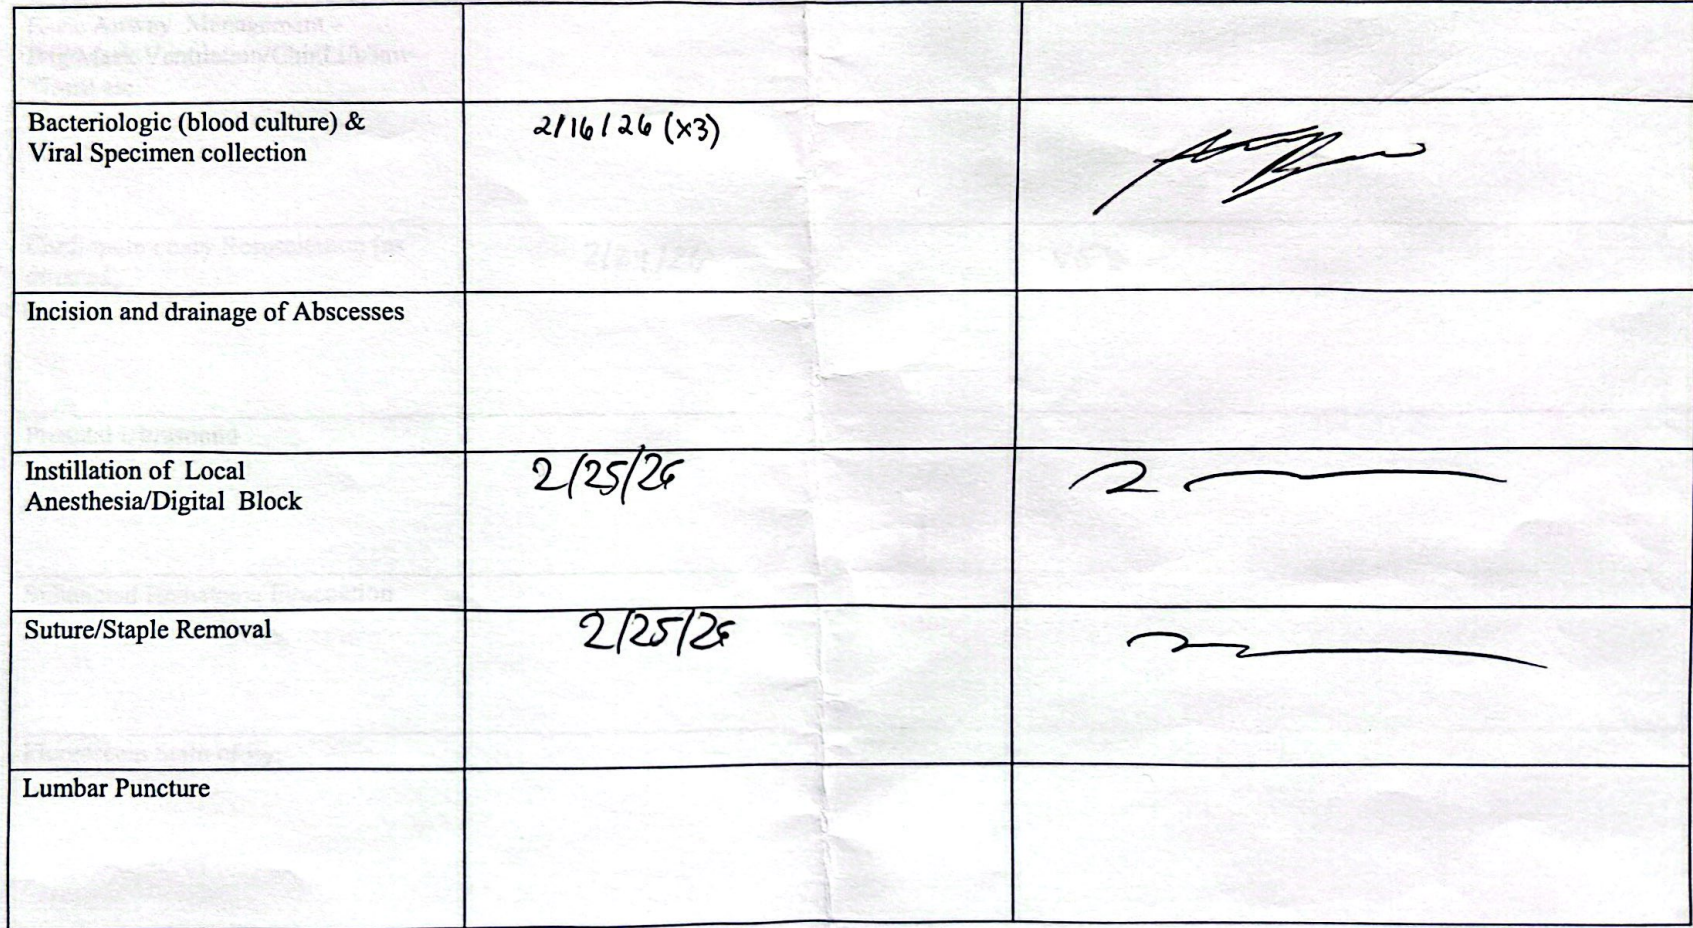 Bacteriologic (blood culture) &
Viral Specimen collection
2/16/26 (x3)
Incision and drainage of Abscesses
Instillation of Local
Anesthesia/Digital Block
2/25/26
Suture/Staple Removal
2/25/26
Lumbar Puncture